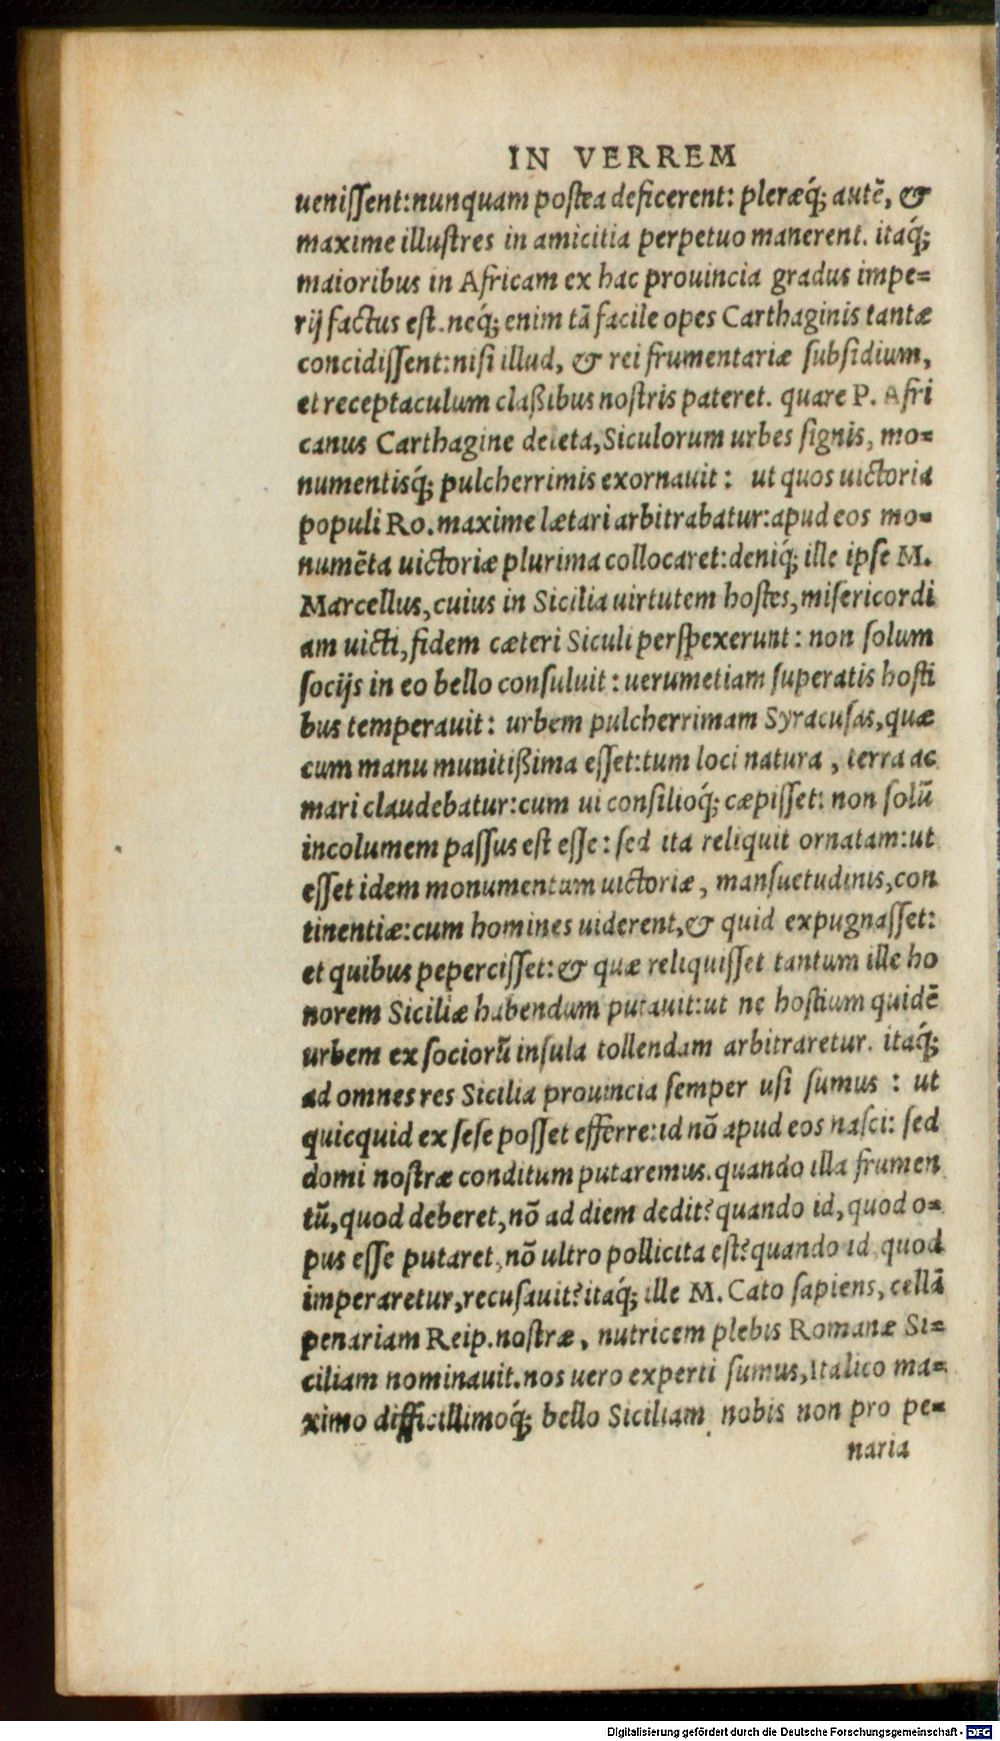 IN VERREM
uenissent:nunquam postea deficerent: pleræq́; autē, &
maxime illustres in amicitia perpetuo manerent. itaq́;
maioribus in Africam ex hac prouincia gradus impe=
rij factus est.neq́; enim tā facile opes Carthaginis tantæ
concidissent:nisi illud, & rei frumentariæ subsidium,
et receptaculum claßibus nostris pateret. quare P. Afri
canus Carthagine deleta,Siculorum urbes signis, mo=
numentisq́; pulcherrimis exornauit: ut quos uictoria
populi Ro.maxime lætari arbitrabatur:apud eos mo=
numēta uictoriæ plurima collocaret:deniq́; ille ipse M.
Marcellus,cuius in Sicilia uirtutem hostes,misericordi
am uicti,fidem cæteri Siculi perspexerunt: non solum
socijs in eo bello consuluit: uerumetiam superatis hosti
bus temperauit: urbem pulcherrimam Syracusas,quæ
cum manu munitißima esset:tum loci natura, terra ac
mari claudebatur:cum ui consilioq́; cæpisset: non solū
incolumem passus est esse: sed ita reliquit ornatam:ut
esset idem monumentum uictoriæ, mansuetudinis,con
tinentiæ:cum homines uiderent,& quid expugnasset:
et quibus pepercisset:& quæ reliquisset tantum ille ho
norem Siciliæ habendum putauit:ut ne hostium quidē
urbem ex sociorū insula tollendam arbitraretur. itaq́;
ad omnes res Sicilia prouincia semper usi sumus: ut
quicquid ex sese posset efferre:id nō apud eos nasci: sed
domi nostræ conditum putaremus.quando illa frumen
tū,quod deberet,nō ad diem dedit?quando id,quod o=
pus esse putaret,nō ultro pollicita est?quando id quod
imperaretur,recusauit?itaq́; ille M.Cato sapiens, cellā
penariam Reip.nostræ, nutricem plebis Romanæ Si=
ciliam nominauit.nos uero experti sumus,Italico ma=
ximo difficillimoq́; bello Siciliam nobis non pro pe=
naria
Digitalisierung gefördert durch die Deutsche Forschungsgemeinschaft - DFG